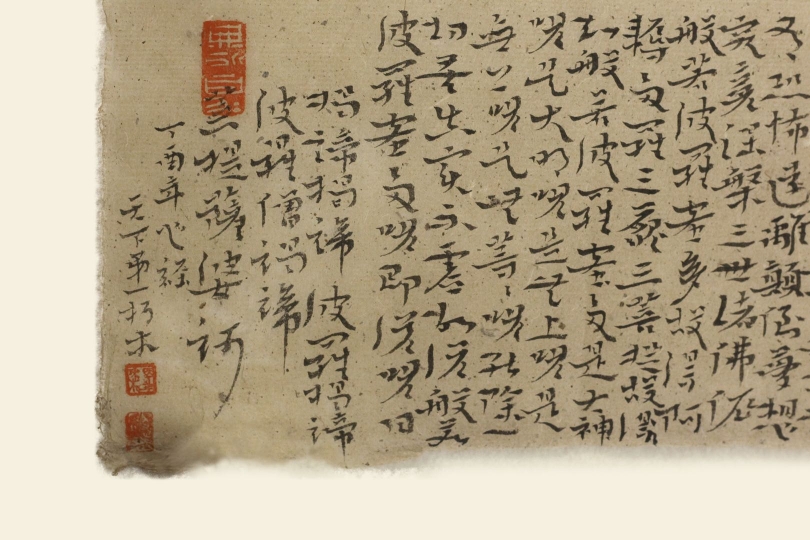 恐怖遠離顛倒夢想
究竟涅槃三世諸佛依
般若波羅蜜多故得阿
耨多羅三藐三菩提故
知般若波羅蜜多是大神
咒是大明咒是無上咒是
無上咒是無等等咒能除一
切苦真實不虛故說般若
波羅蜜多咒即說咒曰
揭諦揭諦 波羅揭諦
波羅僧揭諦
菩提薩婆訶
丁酉年心經
天下第一朽木